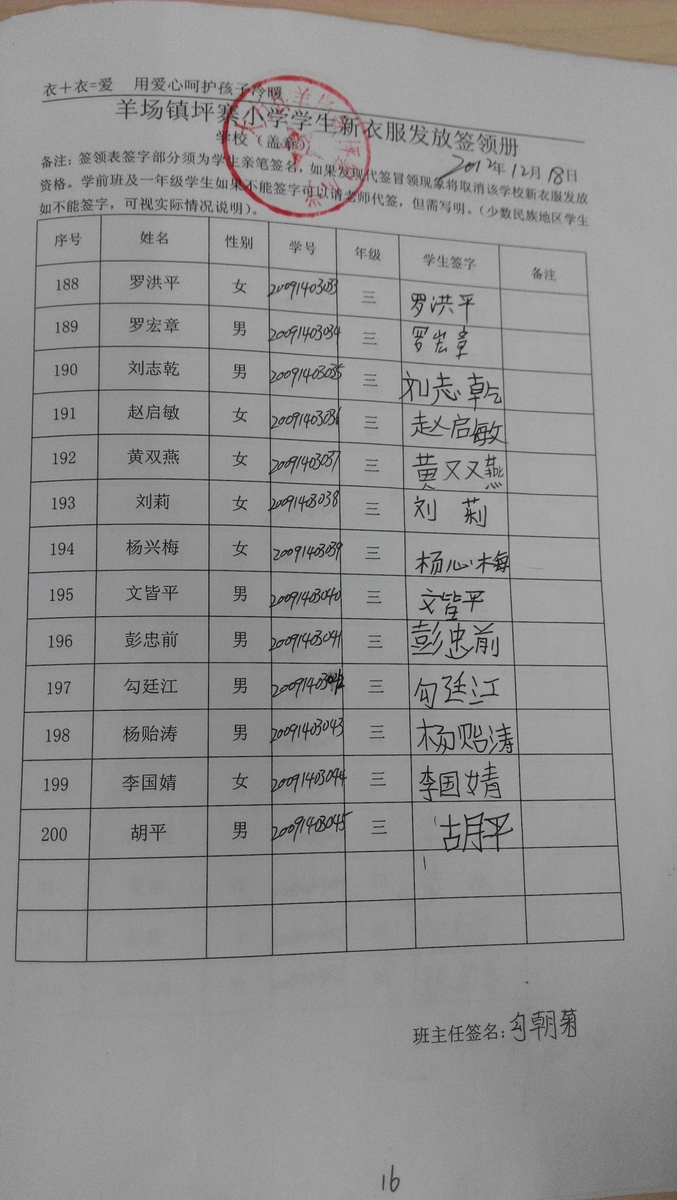 衣+衣=爱 用爱心呵护孩子冷暖
羊场镇坪寨小学学生新衣服发放签领册
学校（盖章） 2012年12月18日
备注：签领表签字部分须为学生亲笔签名，如果发现代签冒领现象将取消该学校新衣服发放
资格。学前班及一年级学生如果不能签字可以请老师代签，但需写明。（少数民族地区学生
如不能签字，可视实际情况说明）。
序号 姓名 性别 学号 年级 学生签字 备注
188 罗洪平 女 20091403033 三 罗洪平
189 罗宏章 男 20091403034 三 罗宏章
190 刘志乾 男 20091403035 三 刘志乾
191 赵启敏 女 20091403036 三 赵启敏
192 黄双燕 女 20091403037 三 黄双燕
193 刘莉 女 20091403038 三 刘莉
194 杨兴梅 女 20091403039 三 杨心梅
195 文皆平 男 20091403040 三 文皆平
196 彭忠前 男 20091403041 三 彭忠前
197 勾廷江 男 20091403042 三 勾廷江
198 杨贻涛 男 20091403043 三 杨贻涛
199 李国婧 女 20091403044 三 李国婧
200 胡平 男 20091403045 三 胡平
班主任签名：勾朝菊
16